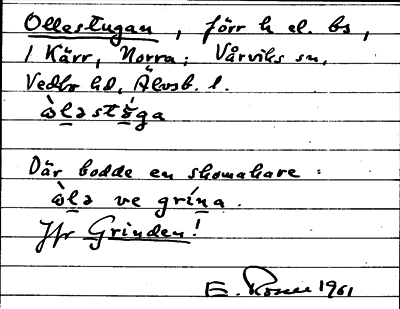 Ollestugan, förr h el. bs,
i Kärr, Norra; Vårviks sn,
Vedbo hd, Älvsb. l.
ὼlə stúga
Där bodde en skomakare:
ὼlə ve grína.
Jfr Grinden!
E. Rosell 1961